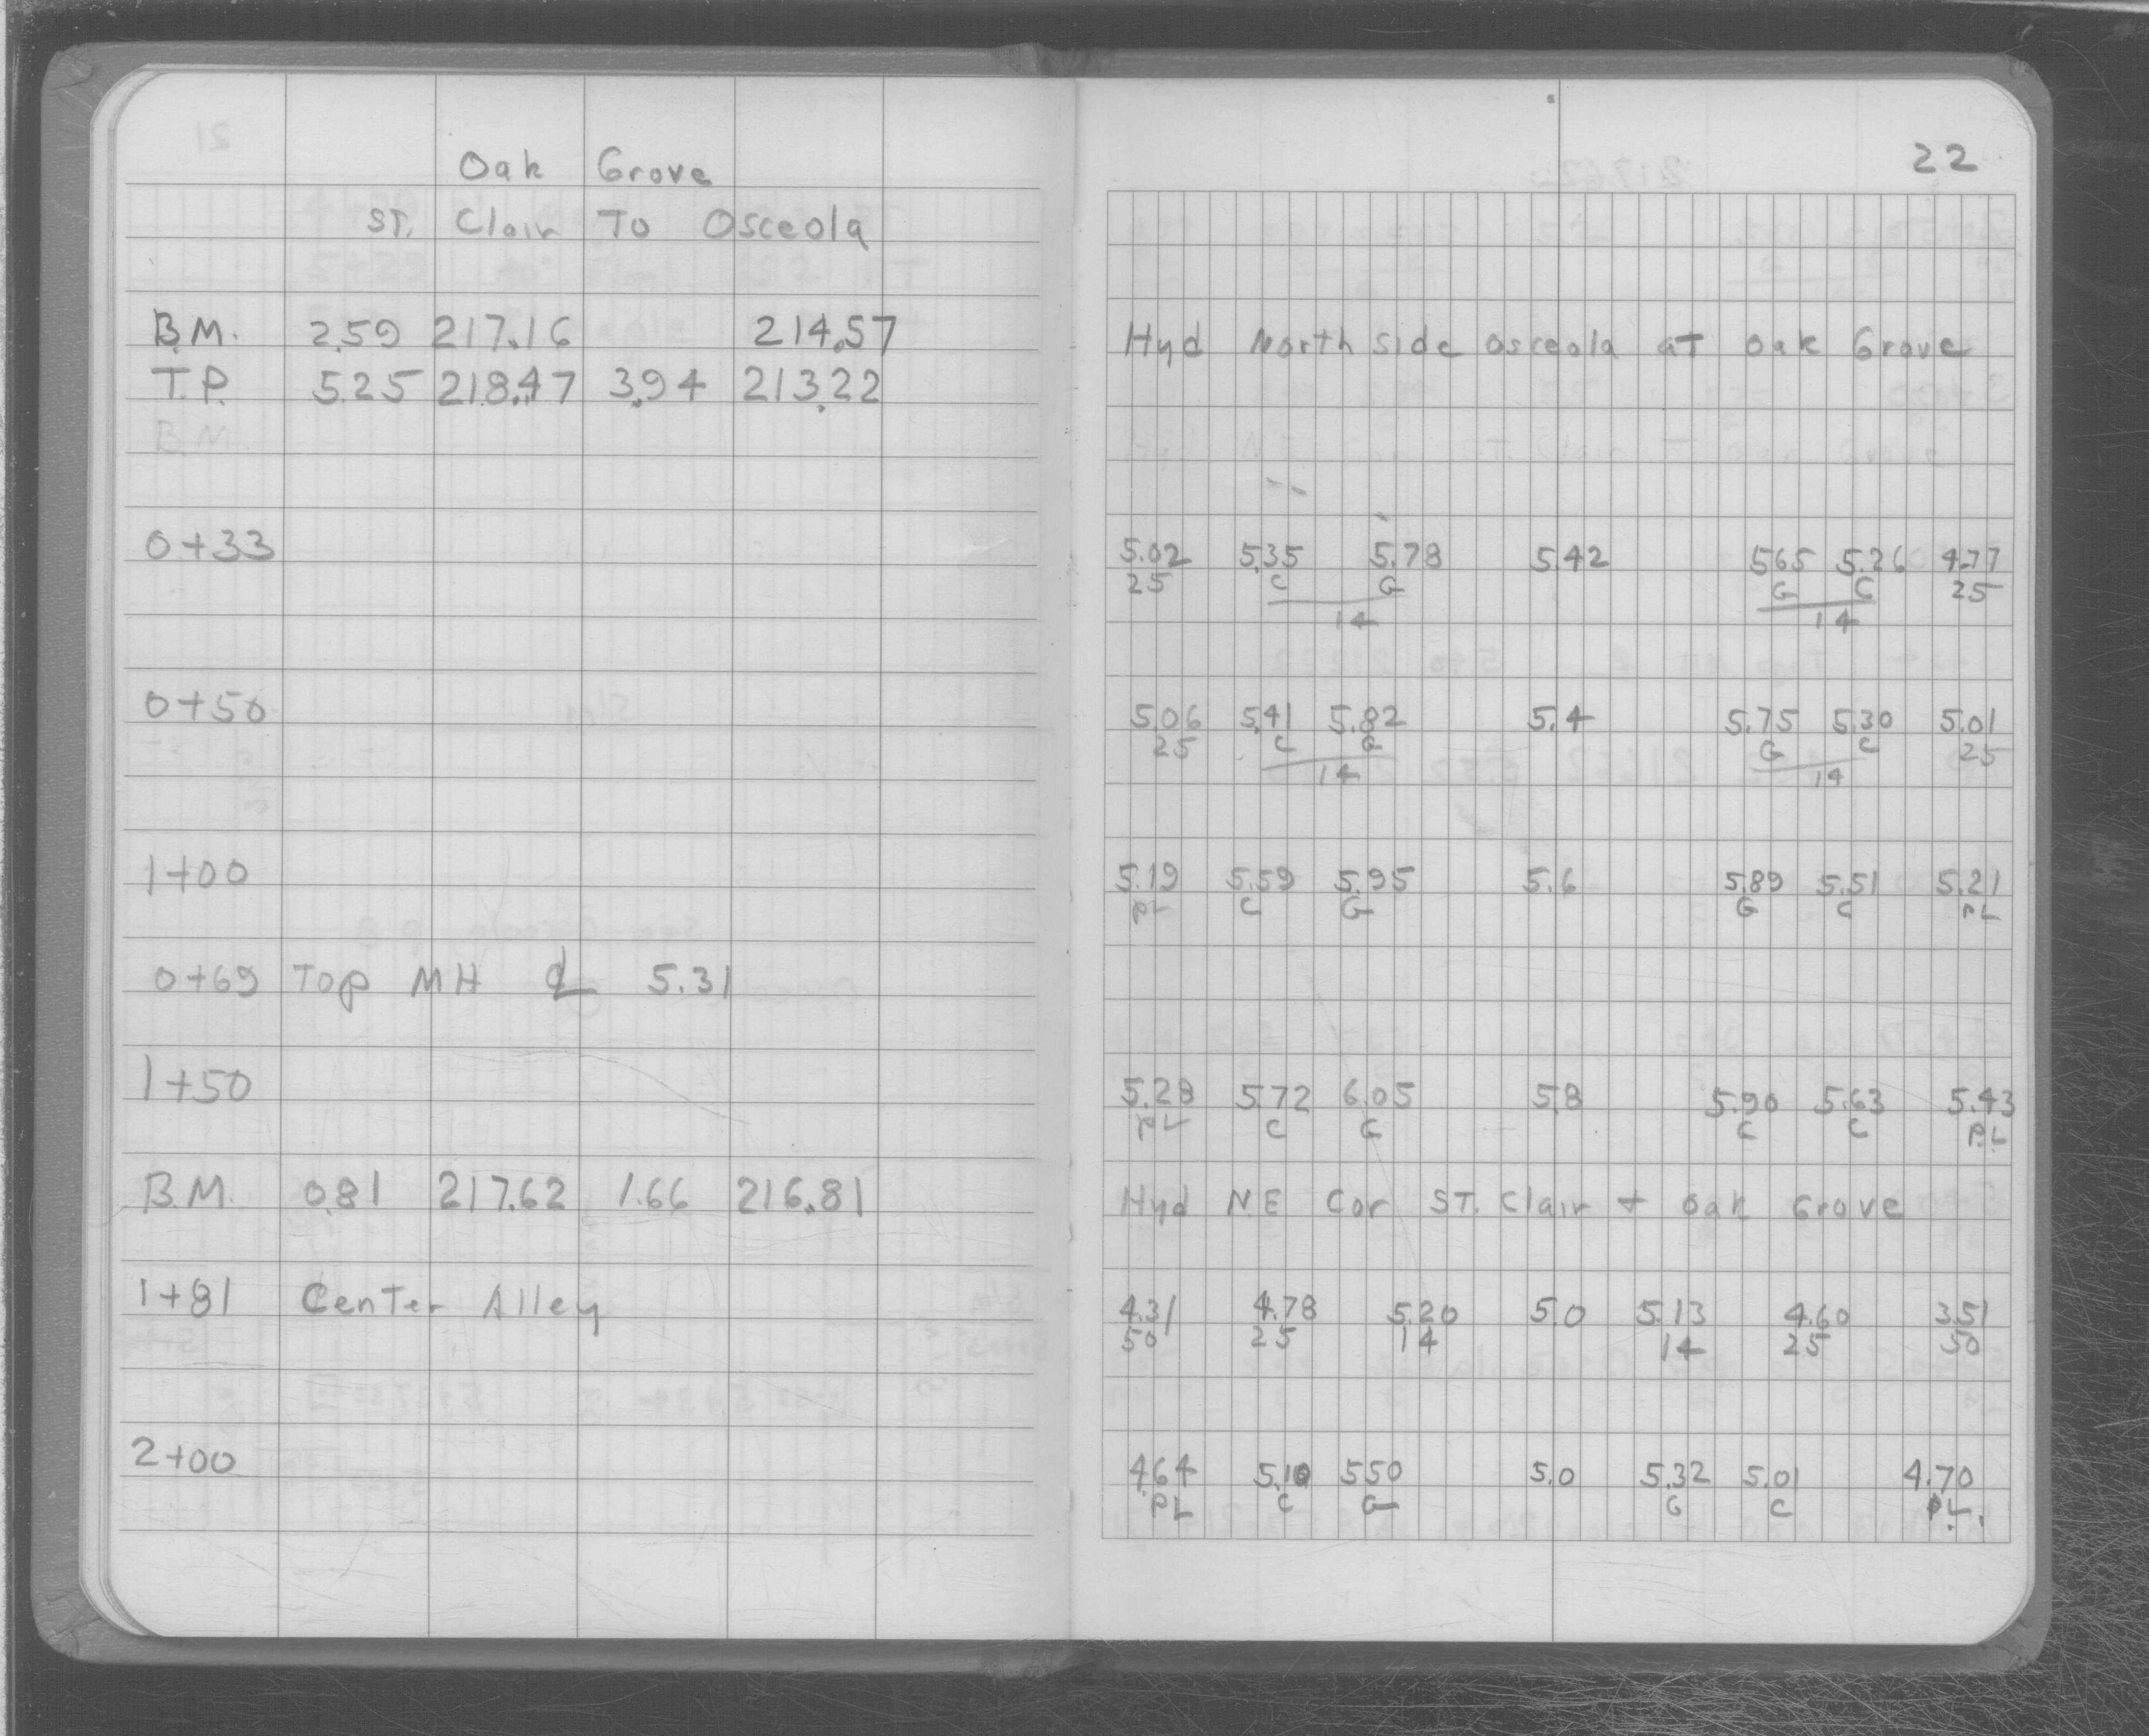 22
Oak Grove
ST. Clair To Osceola
B.M. 2.59 217.16 214.57 Hyd North Side Osceola at Oak Grove
T.P. 5.25 218.47 3.94 213.22
0+33 5.02 5.35 5.78 5.42 5.65 5.26 4.77
25 C G G C 25
14 14
0+50 5.06 5.41 5.82 5.4 5.75 5.30 5.01
25 C G G C 25
14 14
1+00 5.19 5.59 5.95 5.6 5.89 5.51 5.21
PL C G G C PL
0+69 Top MH ℄ 5.31
1+50 5.28 5.72 6.05 5.8 5.90 5.63 5.43
PL C G C C P.L
B.M. 0.81 217.62 1.66 216.81 Hyd NE Cor ST. Clair + Oak Grove
1+81 Center Alley 4.31 4.78 5.20 5.0 5.13 4.60 3.51
50 25 14 14 25 50
2+00 4.64 5.10 5.50 5.0 5.32 5.01 4.70
PL C G G C P.L.